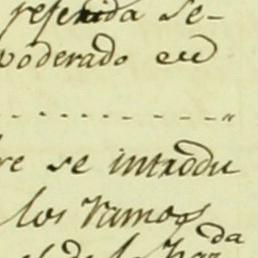 referida Se-
poderado en
re se introdu
los Ramos
da